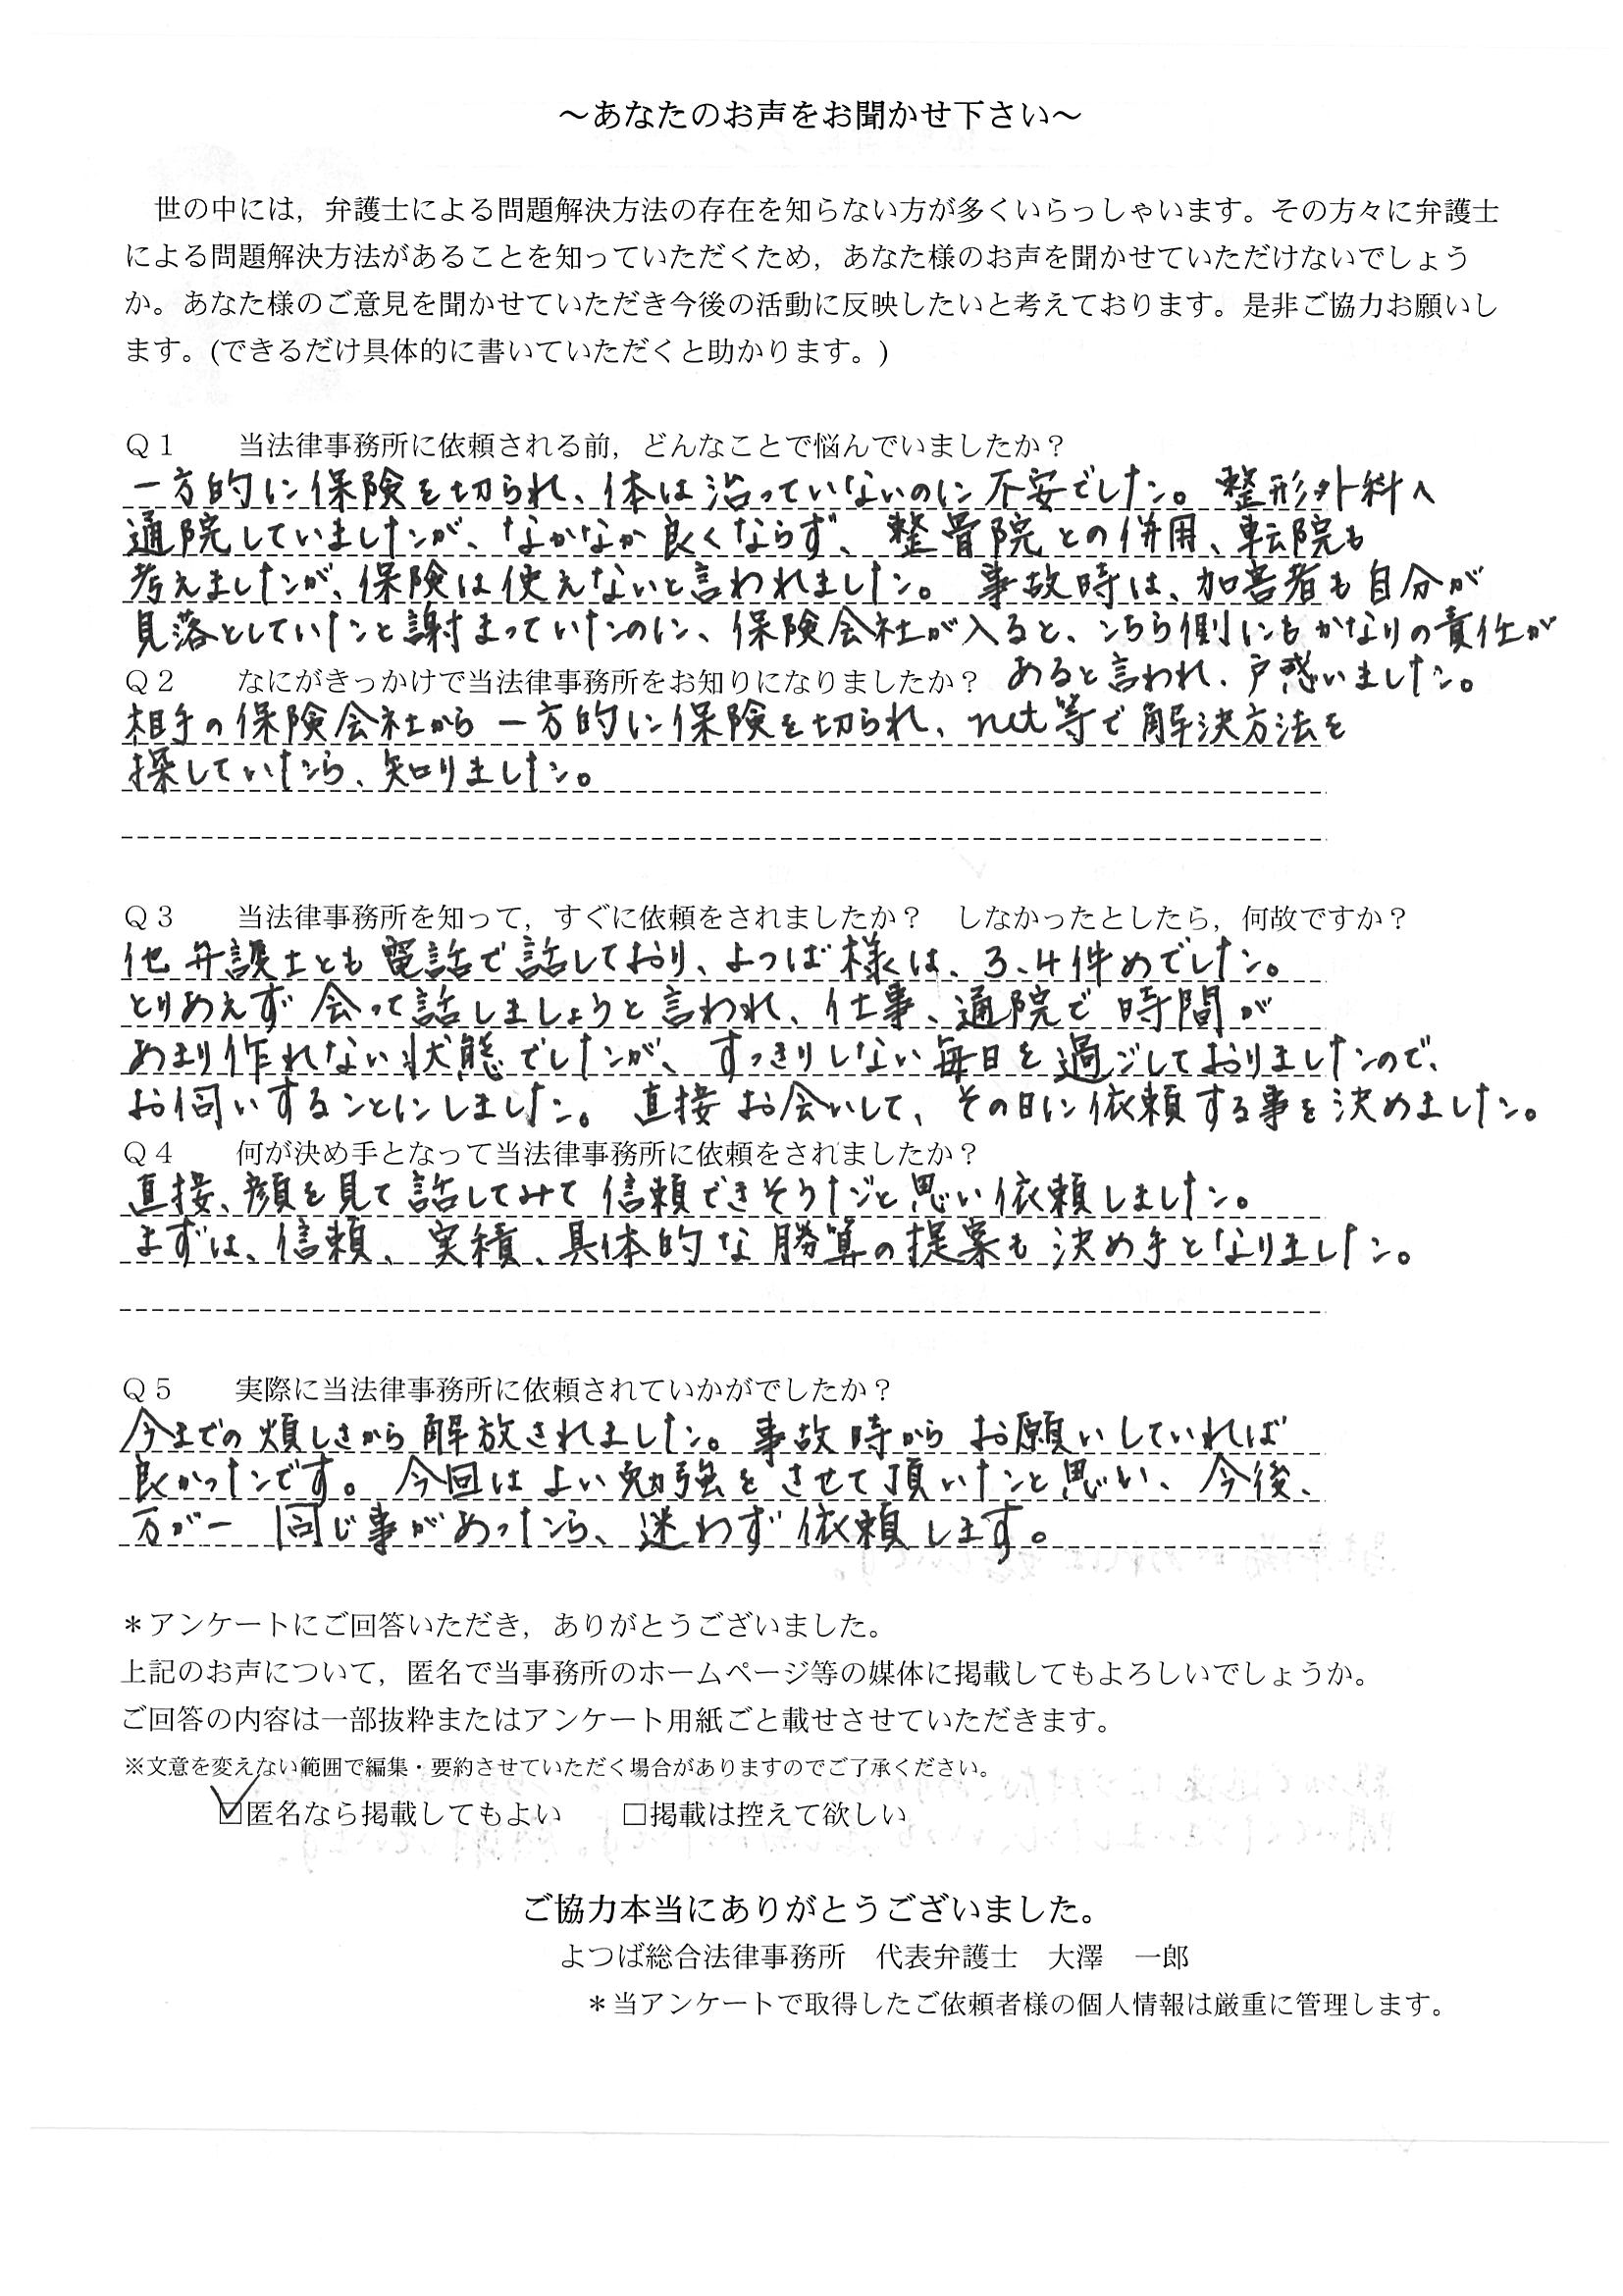 ～あなたのお声をお聞かせ下さい～
世の中には，弁護士による問題解決方法の存在を知らない方が多くいらっしゃいます。その方々に弁護士
による問題解決方法があることを知っていただくため，あなた様のお声を聞かせていただけないでしょう
か。あなた様のご意見を聞かせていただき今後の活動に反映したいと考えております。是非ご協力お願いし
ます。(できるだけ具体的に書いていただくと助かります。)
Ｑ１　　当法律事務所に依頼される前，どんなことで悩んでいましたか？
一方的に保険を切られ、体は治っていないのに不安でした。整形外科へ
通院していましたが、なかなか良くならず、整骨院との併用、転院も
考えましたが、保険は使えないと言われました。事故時は、加害者も自分が
見落としていたと謝まっていたのに、保険会社が入ると、こちら側にもかなりの責任が
あると言われ、戸惑いました。
Ｑ２　　なにがきっかけで当法律事務所をお知りになりましたか？
相手の保険会社から一方的に保険を切られ、net等で解決方法を
探していたら、知りました。
Ｑ３　　当法律事務所を知って，すぐに依頼をされましたか？　しなかったとしたら，何故ですか？
他弁護士とも電話で話しており、よつば様は、3、4件めでした。
とりあえず会って話しましょうと言われ、仕事、通院で時間が
あまり作れない状態でしたが、すっきりしない毎日を過ごしておりましたので、
お伺いすることにしました。直接お会いして、その日に依頼する事を決めました。
Ｑ４　　何が決め手となって当法律事務所に依頼をされましたか？
直接、顔を見て話してみて信頼できそうだと思い依頼しました。
まずは、信頼、実績、具体的な勝算の提案も決め手となりました。
Ｑ５　　実際に当法律事務所に依頼されていかがでしたか？
今までの煩しさから解放されました。事故時からお願いしていれば
良かったです。今回はよい勉強をさせて頂いたと思い、今後、
万が一同じ事があったら、迷わず依頼します。
＊アンケートにご回答いただき，ありがとうございました。
上記のお声について，匿名で当事務所のホームページ等の媒体に掲載してもよろしいでしょうか。
ご回答の内容は一部抜粋またはアンケート用紙ごと載せさせていただきます。
※文意を変えない範囲で編集・要約させていただく場合がありますのでご了承ください。
☑匿名なら掲載してもよい　　□掲載は控えて欲しい
ご協力本当にありがとうございました。
よつば総合法律事務所　代表弁護士　大澤　一郎
＊当アンケートで取得したご依頼者様の個人情報は厳重に管理します。